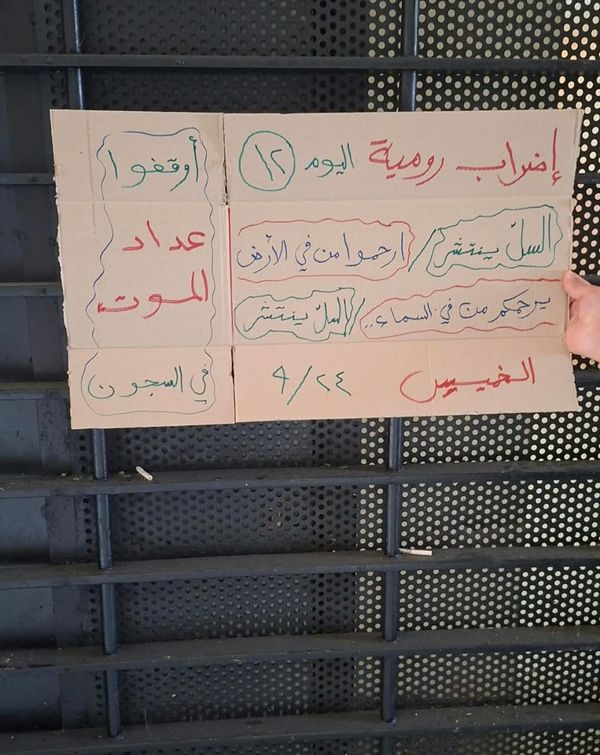 إضراب رومية اليوم ١٢
السلّ ينتشر / ارحموا من في الأرض
يرحمكم من في السماء.. / السلّ ينتشر
الخميس ٩/٢٤
أوقفوا
عداد
الموت
في السجون